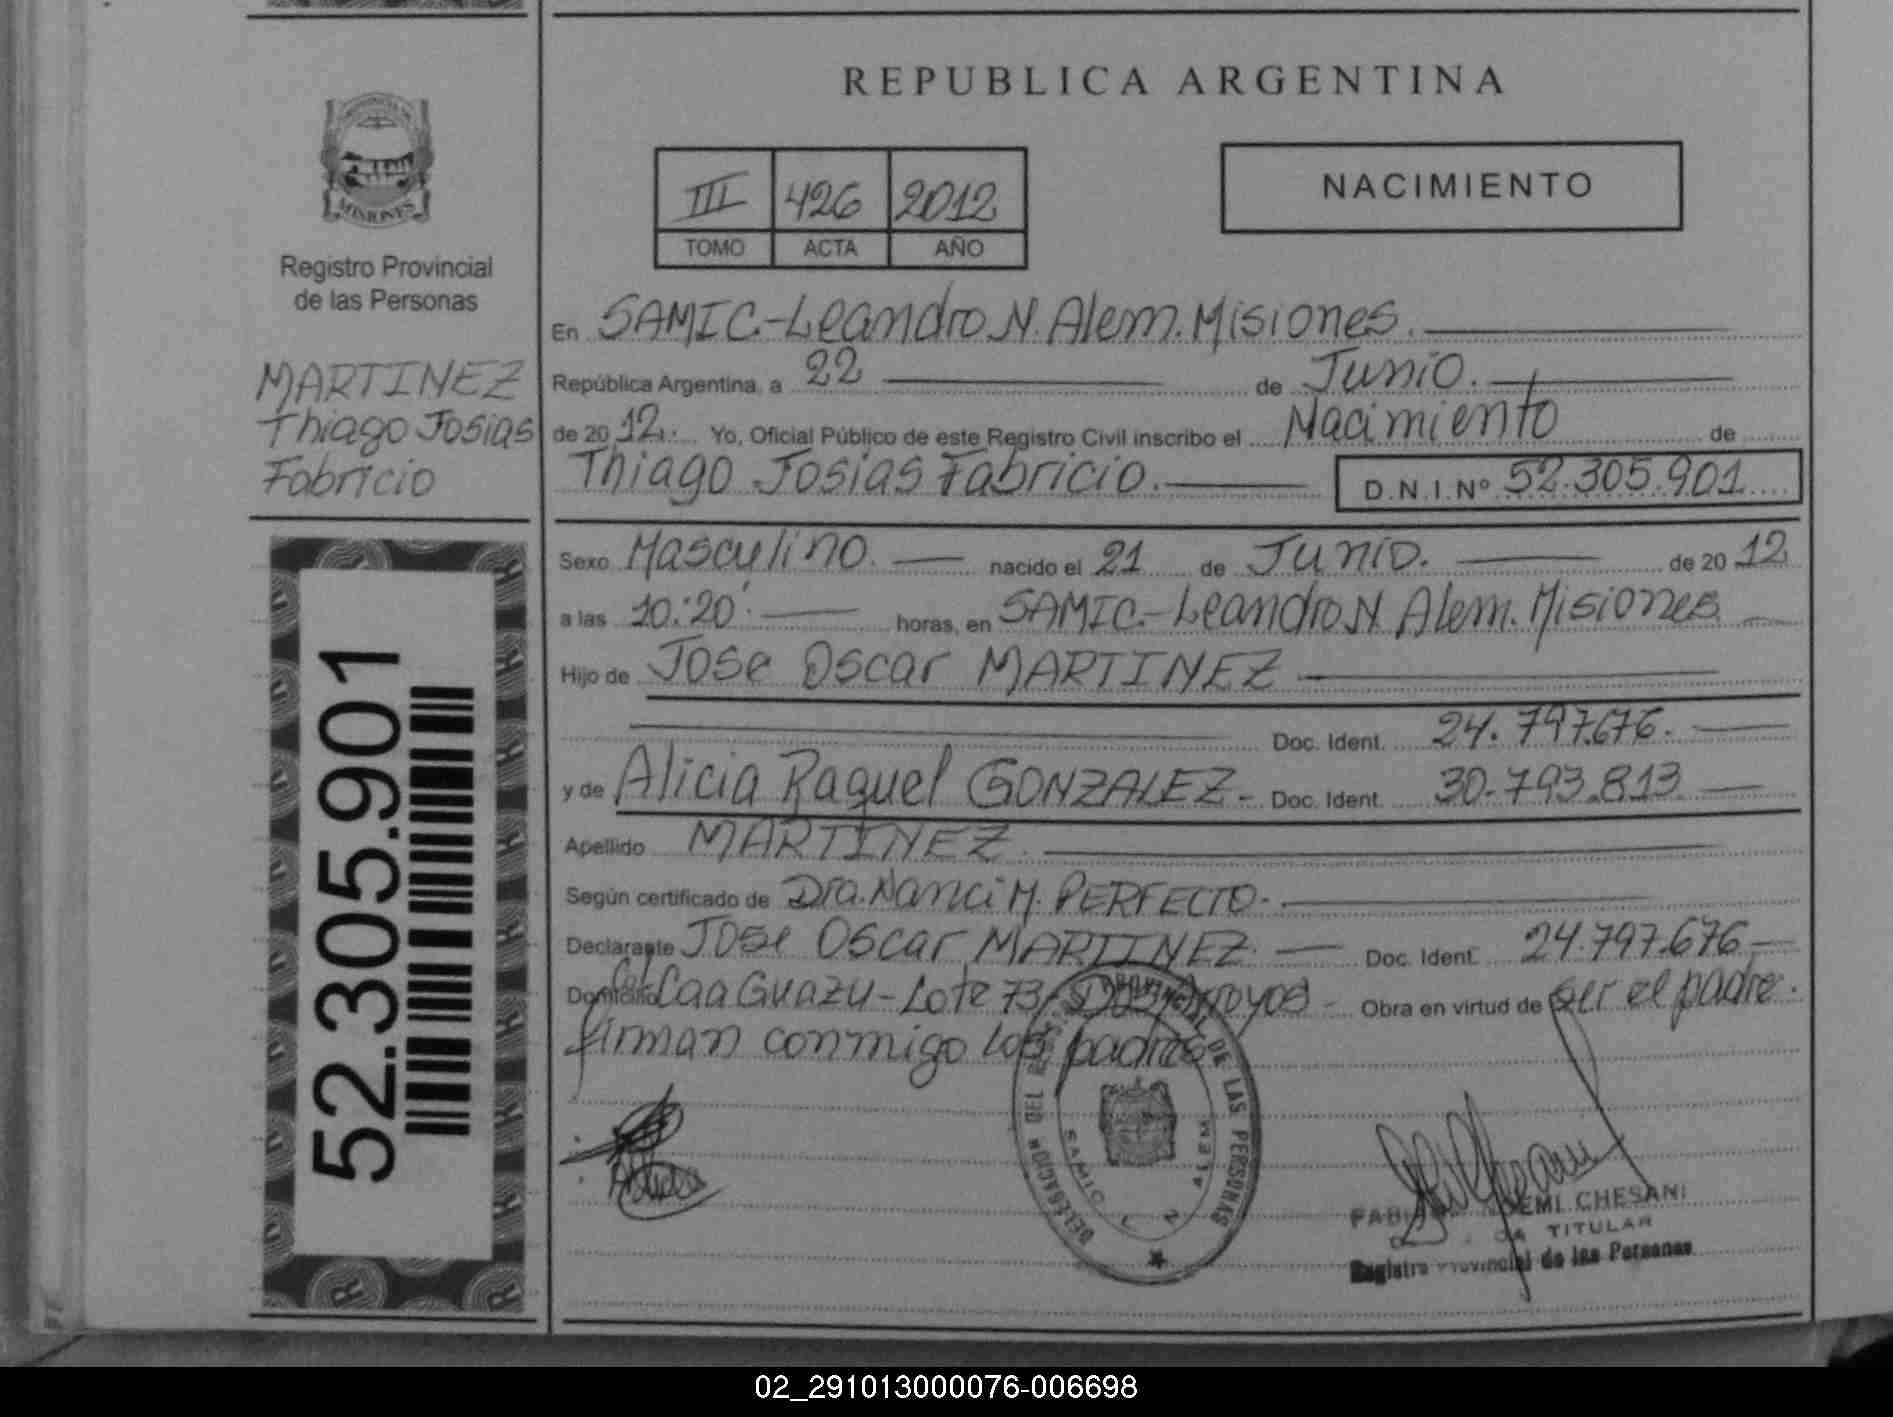 REPUBLICA ARGENTINA
III 426 2012
TOMO ACTA AÑO
NACIMIENTO
MISIONES
Registro Provincial
de las Personas
MARTINEZ
Thiago Josias
Fabricio
52.305.901
En SAMIC.-Leandro N. Alem. Misiones.
República Argentina, a 22 de Junio.
de 20 12. Yo, Oficial Público de este Registro Civil inscribo el Nacimiento de
Thiago Josias Fabricio. D.N.I.Nº 52.305.901
Sexo Masculino. nacido el 21 de Junio. de 20 12
a las 10:20' horas, en SAMIC.-Leandro N. Alem. Misiones
Hijo de Jose Oscar MARTINEZ
Doc. Ident. 24.797.676.
y de Alicia Raquel GONZALEZ- Doc. Ident. 30.793.813
Apellido MARTINEZ.
Según certificado de Dra. Nanci M. PERFECTO.
Declarante Jose Oscar MARTINEZ. Doc. Ident. 24.797.676
Domicilio Caa Guazu - Lote 73 - Dos Arroyos - Obra en virtud de ser el padre.
firman conmigo los padres
DELEGACION DEL REGISTRO PROVINCIAL DE LAS PERSONAS
SAMIC L N ALEM
NOEMI CHESANI
TITULAR
Registro Provincial de las Personas
02_291013000076-006698